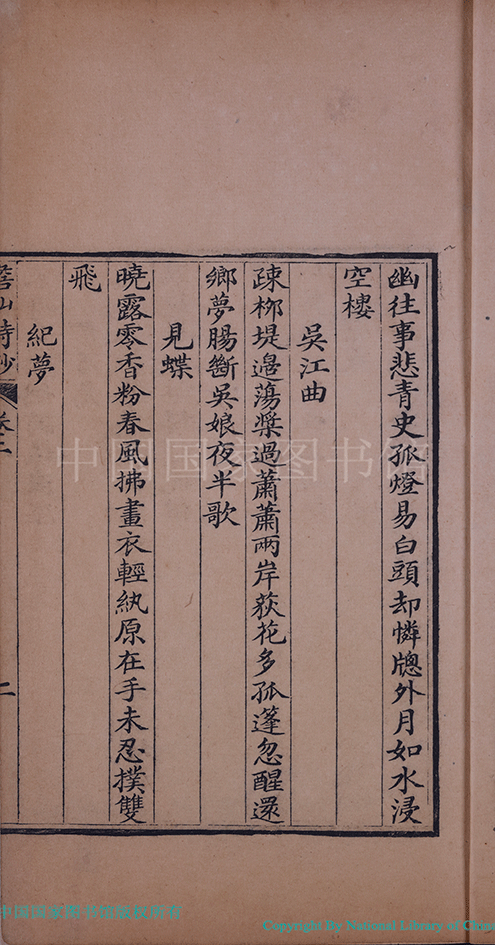 幽往事悲青史孤燈易白頭却憐牕外月如水浸
空樓
吳江曲
疎栁堤邉蕩槳過蕭蕭兩岸荻花多孤蓬忽醒還
鄉夢腸斷吳娘夜半歌
見蝶
曉露零香粉春風拂畫衣輕紈原在手未忍撲雙
飛
紀夢
山詩鈔
卷二
二
中国国家图书馆
中国国家图书馆版权所有
Copyright By National Library of China